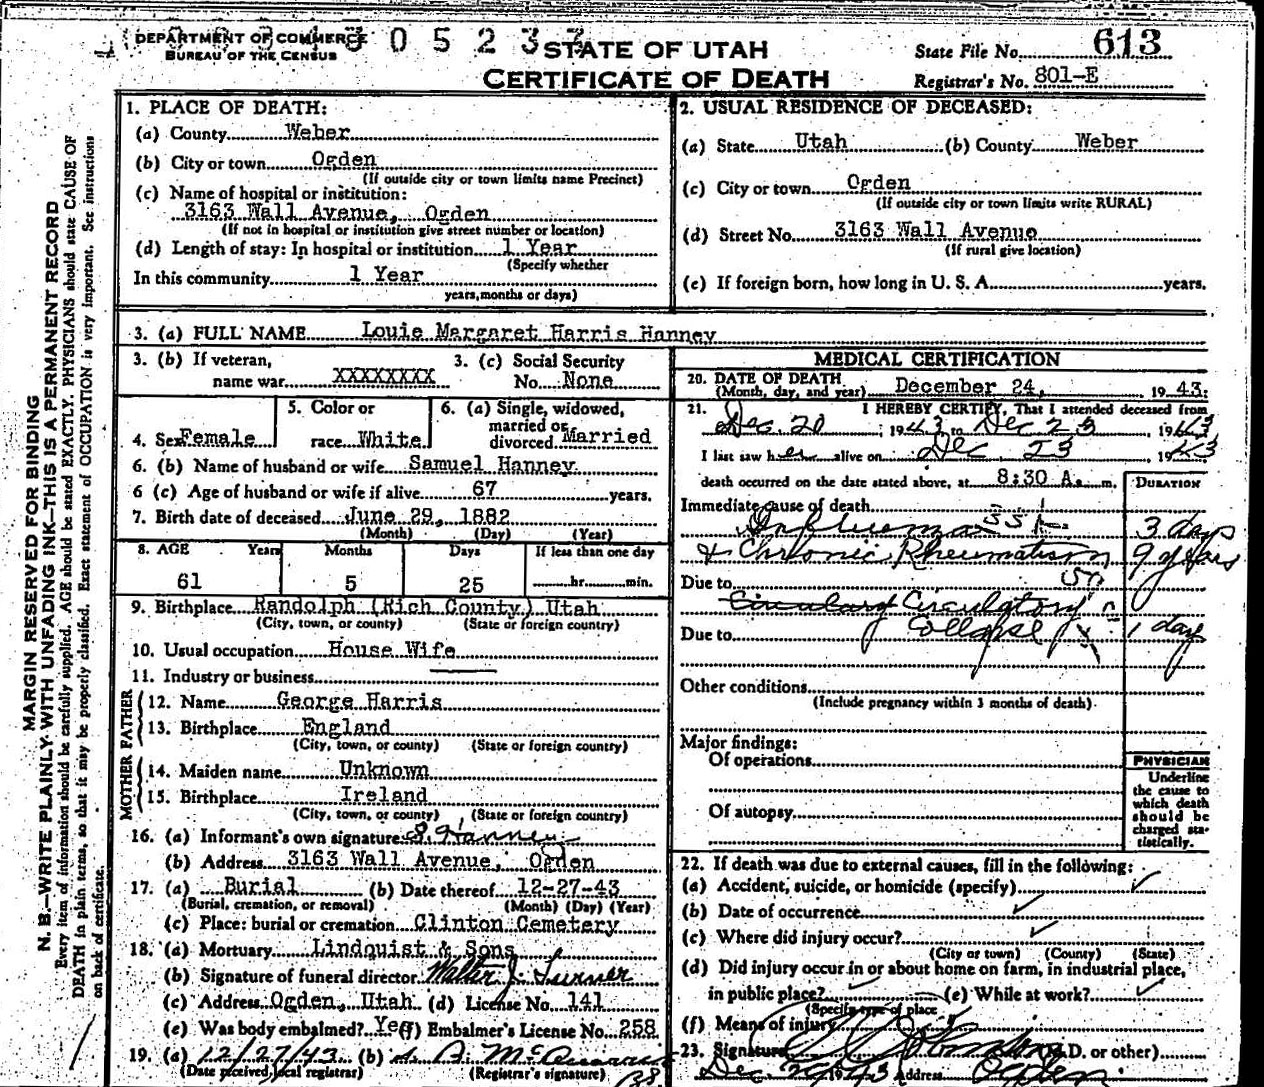 DEPARTMENT OF COMMERCE
BUREAU OF THE CENSUS
0 5 2 3
STATE OF UTAH
CERTIFICATE OF DEATH
State File No. 613
Registrar's No. 801-E
MARGIN RESERVED FOR BINDING
N. B.—WRITE PLAINLY WITH UNFADING INK—THIS IS A PERMANENT RECORD
Every item of information should be carefully supplied. AGE should be stated EXACTLY. PHYSICIANS should state CAUSE OF
DEATH in plain terms, so that it may be properly classified. Exact statement of OCCUPATION is very important. See instructions
on back of certificate.
1. PLACE OF DEATH:
(a) County Weber
(b) City or town Ogden
(If outside city or town limits name Precinct)
(c) Name of hospital or institution:
3163 Wall Avenue, Ogden
(If not in hospital or institution give street number or location)
(d) Length of stay: In hospital or institution 1 Year
(Specify whether
In this community 1 Year
years, months or days)
2. USUAL RESIDENCE OF DECEASED:
(a) State Utah (b) County Weber
(c) City or town Ogden
(If outside city or town limits write RURAL)
(d) Street No. 3163 Wall Avenue
(If rural give location)
(e) If foreign born, how long in U. S. A. years.
3. (a) FULL NAME Louie Margaret Harris Hanney
3. (b) If veteran,
name war XXXXXXXX
3. (c) Social Security
No. None
4. Sex Female
5. Color or
race White
6. (a) Single, widowed,
married or
divorced Married
6. (b) Name of husband or wife Samuel Hanney
6 (c) Age of husband or wife if alive 67 years.
7. Birth date of deceased June 29, 1882
(Month) (Day) (Year)
8. AGE Years Months Days If less than one day
61 5 25 hr. min.
9. Birthplace Randolph (Rich County) Utah
(City, town, or county) (State or foreign country)
10. Usual occupation House Wife
11. Industry or business
FATHER
12. Name George Harris
13. Birthplace England
(City, town, or county) (State or foreign country)
MOTHER
14. Maiden name Unknown
15. Birthplace Ireland
(City, town, or county) (State or foreign country)
16. (a) Informant's own signature S. Hanney
(b) Address 3163 Wall Avenue, Ogden
17. (a) Burial (b) Date thereof 12-27-43
(Burial, cremation, or removal) (Month) (Day) (Year)
(c) Place: burial or cremation Clinton Cemetery
18. (a) Mortuary Lindquist & Sons
(b) Signature of funeral director Walter J. Turner
(c) Address Ogden, Utah (d) License No. 141
(e) Was body embalmed? Yes (f) Embalmer's License No. 258
19. (a) 12/27/43 (b)
(Date received, local registrar) (Registrar's signature)
MEDICAL CERTIFICATION
20. DATE OF DEATH
(Month, day, and year) December 24, 1943.
21. I HEREBY CERTIFY, That I attended deceased from
Dec. 20, 1943 to Dec 23 1943
I last saw her alive on Dec 23 1943
death occurred on the date stated above, at 8:30 A. m.
DURATION
Immediate cause of death
Influenza 33 3 days
& Chronic Rheumatism 9 years
Due to
Circulatory
Due to Collapse 1 day
Other conditions
(Include pregnancy within 3 months of death)
Major findings:
Of operations
Of autopsy
PHYSICIAN
Underline
the cause to
which death
should be
charged sta-
tistically.
22. If death was due to external causes, fill in the following:
(a) Accident, suicide, or homicide (specify)
(b) Date of occurrence
(c) Where did injury occur?
(City or town) (County) (State)
(d) Did injury occur in or about home on farm, in industrial place,
in public place? (e) While at work?
(Specify type of place
(f) Means of injury
23. Signature (M.D. or other)
Dec 1943 Address Ogden